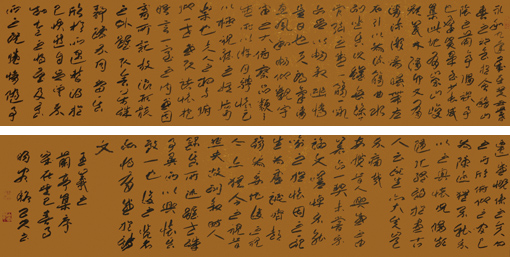 永和九年歲在癸丑暮
春之初會於會稽山
陰之蘭亭修禊事
也群賢畢至少長咸
集此地有崇山峻
領茂林修竹又有清
流激湍映帶左
右引以為流觴曲
水列坐其次雖無絲
竹管弦之盛一觴一詠
亦足以暢敘幽情
是日也天朗氣清
惠風和暢仰觀宇
宙之大俯察品類
之盛所以遊目騁懷足
以極視聽之娛信可
樂也夫人之相與俯
仰一世或取諸懷抱
悟言一室之內或因
寄所託放浪形骸
之外雖取舍萬殊
靜躁不同當其
欣於所遇暫得於
己快然自足不
知老之將至及其
所之既倦情隨事
遷感慨係之矣向之
所欣俛仰之間已
為陳跡猶不能不
以之興懷況修短
隨化終期於盡古
人云死生亦大矣豈
不痛哉每覽昔
人興感之由
若合一契未嘗不
臨文嗟悼不能
喻之於懷固知一死
生為虛誕齊彭
殤為妄作後之視
今亦猶今之視昔
悲夫故列敘時人
錄其所述雖世殊
事異所以興懷其
致一也後之覽者
亦將有感於斯
文
王羲之
蘭亭集序